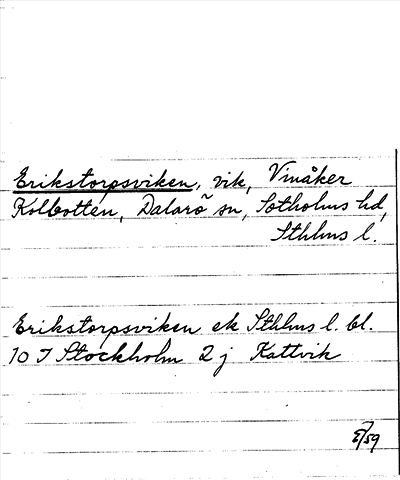 Erikstorpsviken, vik, Vinåker
Kolbotten, Dalarö sn, Sotholms hd,
Sthlms l.
Erikstorpsviken ek Sthlms l. bl.
10 I Stockholm 2 j Kattvik
/59